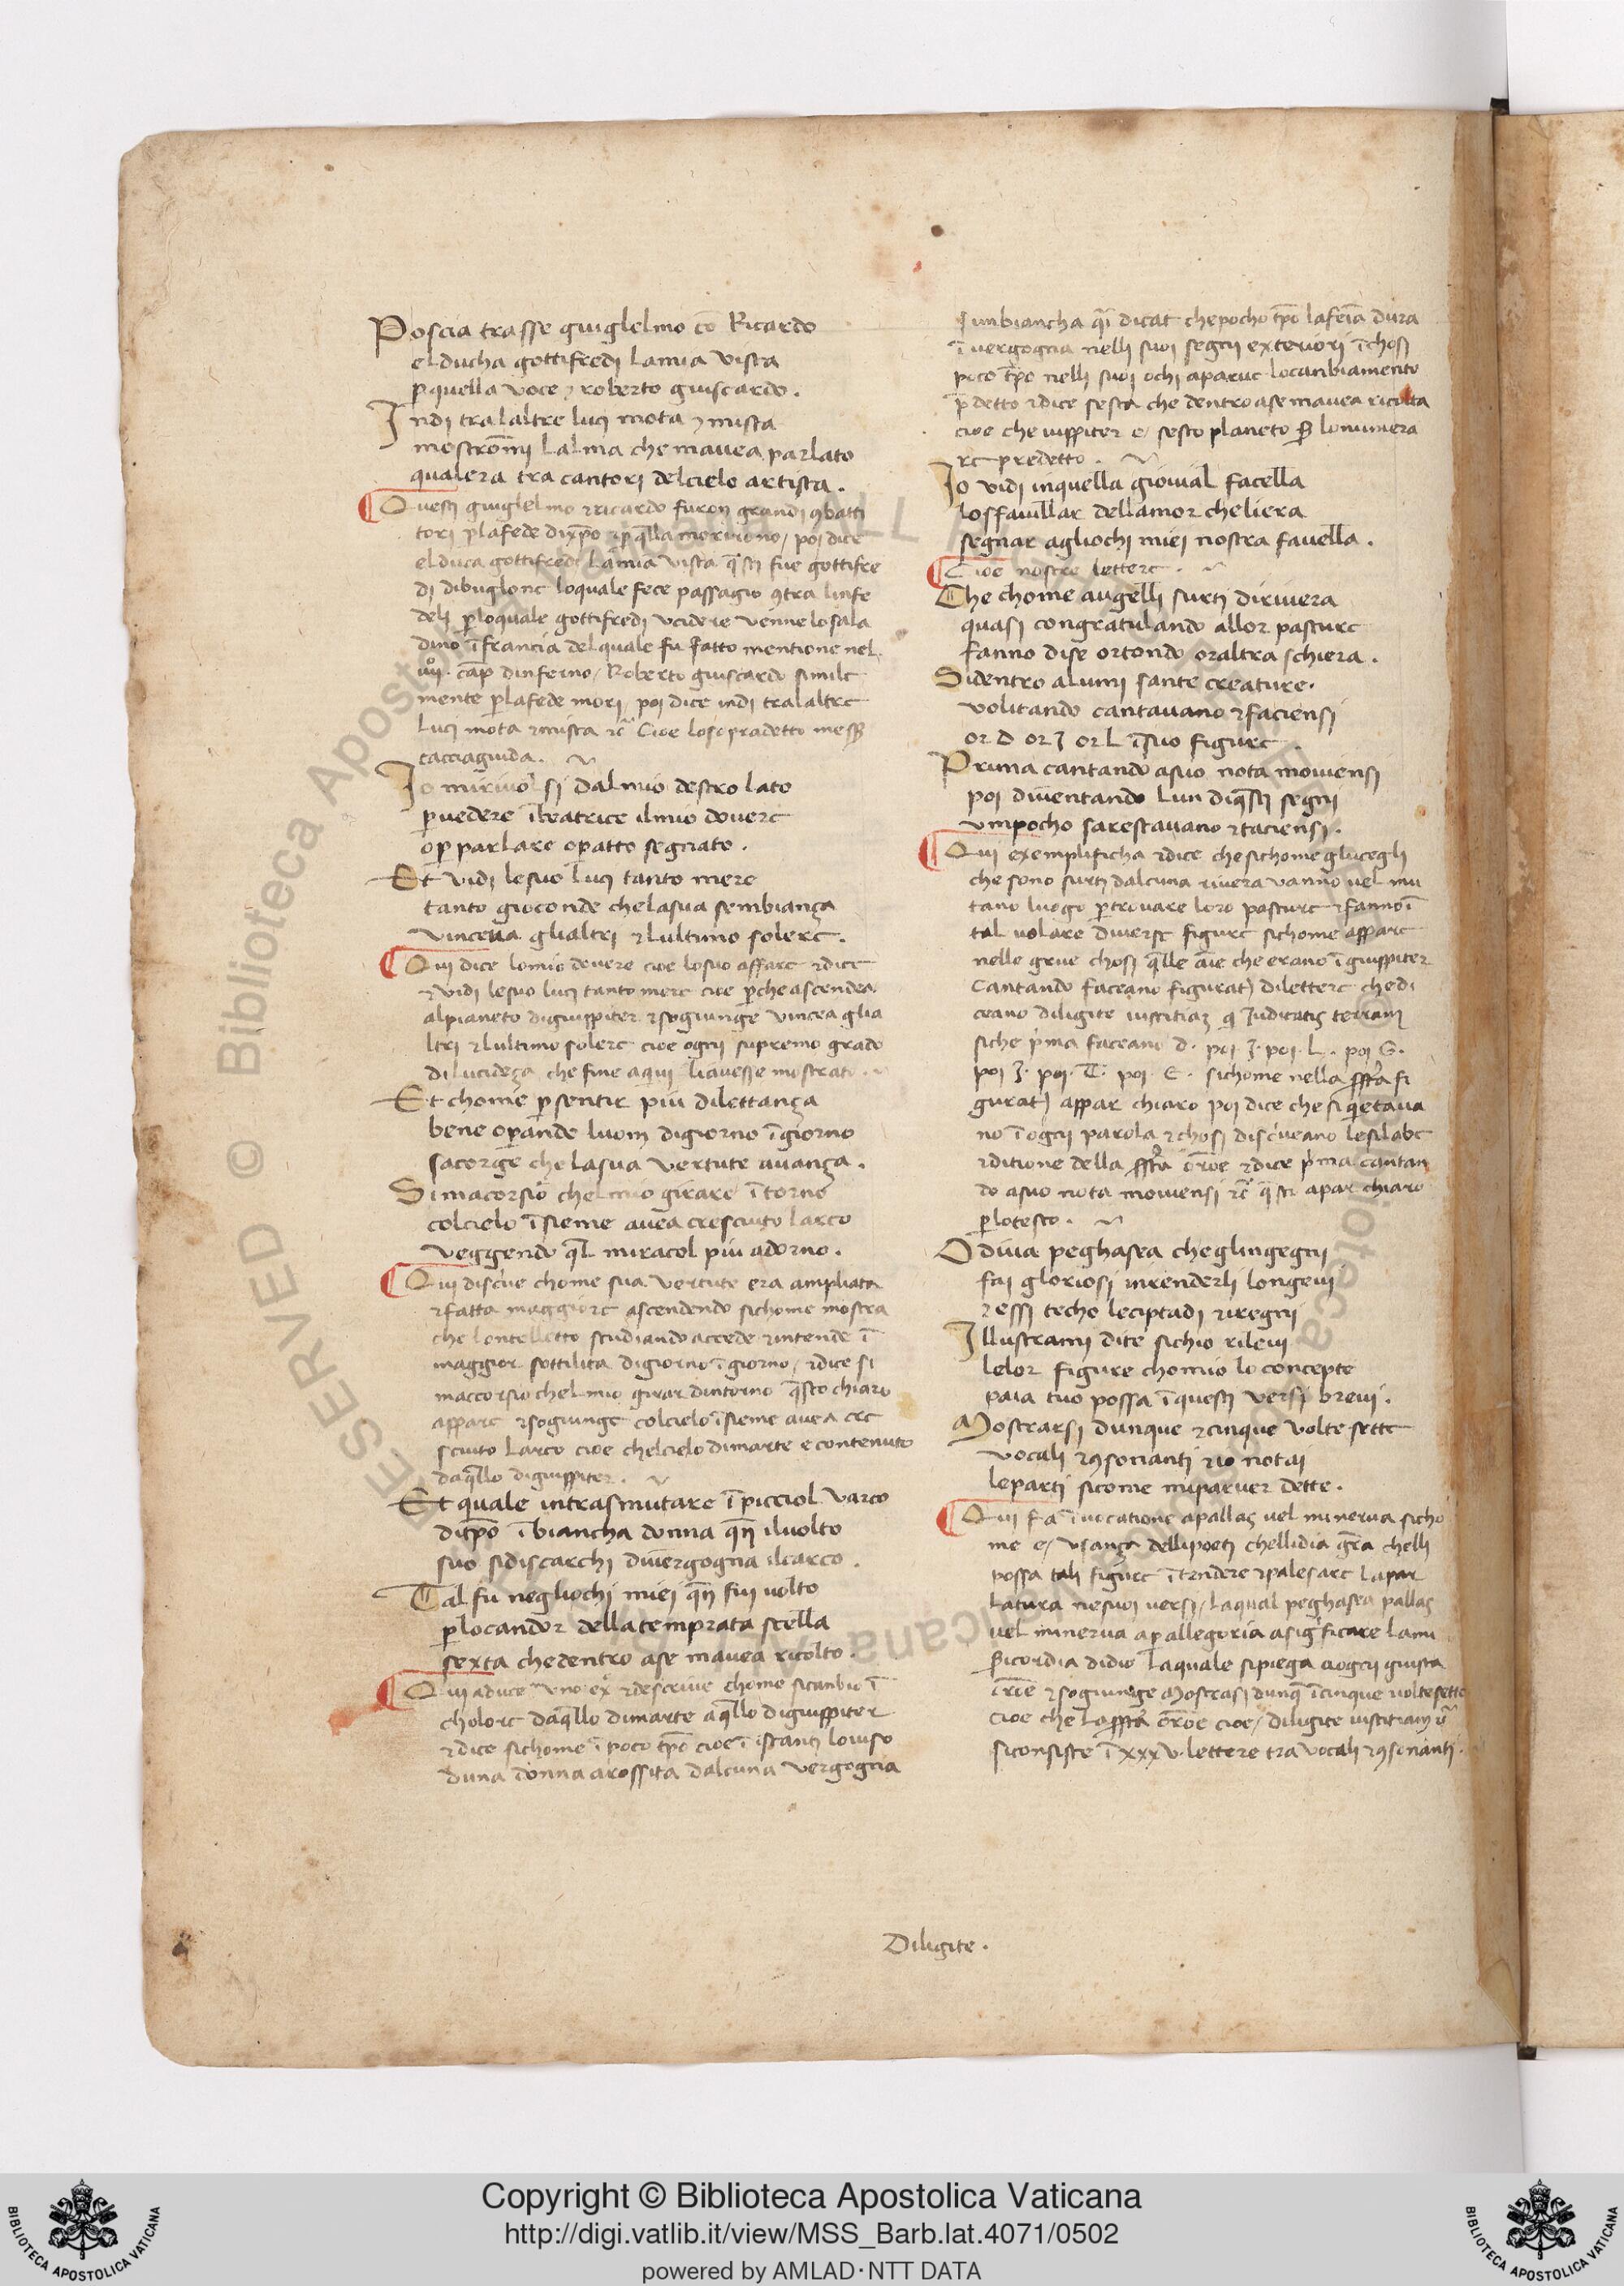 Poscia trasse guiglelmo cō Ricardo
elducha gottifredj lamia vista
p̱ quella voce ⁊ roberto guiscardo .
Indj tralaltre lucj mota ⁊ mista
mostrōmi lalma che mavea parlato
qualera tra cantorj delcielo artista .
Questj guiglelmo ⁊ricardo furon grandj ꝯbatti
tori p̱lafede dixp̄o ⁊p̱ q̄lla morirono / poj dice
elduca gottifredj lamia vista q̄stj fue gottifre
dj dibuglone loquale fece passagio ꝯtra linfe
delj p̱loquale gottifredj vcidere venne losala
dino ī francia delquale fu fatto mentione nel
cap̄ dinferno / Roberto guiscardo simile
mente p̱lafede morj / poj dice indj tralaltre
Lucj mota ⁊mista ⁊c̄ Cioe losopradetto mess̄
cacciaguida .
Io mirivolsj dalmio destro lato
p̱vedere ībeatrice ilmio dovere
op̱ parlare op̱atto segnato .
Et vidj lesue lucj tanto mere
tanto gioconde chelasua sembianza
vinceua glialtrj ⁊lultimo solere .
Quj dice lomio dovere cioe losuo affare ⁊dice
⁊vidj lesue lucj tanto mere cioe p̱che ascendea
alpianeto digiuppiter ⁊sogiunge vincea glia
ltri ⁊lultimo solere cioe ognj supremo grado
dilucideza che fine aquj liavesse mostrato .
Et chome p̱sentir piu dilettanza
bene op̱ando luom digiorno īgiorno
sacorge che lasua vertute avanza .
Simacorsio chelmio girare ītorno
colcielo īsieme avea cresciuto larco
veggendo q̄l miracol piu adorno .
Quj discriue chome sua vertute era ampliata
⁊fatta maggiore ascendendo sichome mostra
che lontelletto studiando accede ⁊intende ī
maggior sottilita digiorno īgiorno / ⁊dice si
maccorsio chelmio girar dintorno q̄sto chiaro
appare ⁊sogiunge colcielo īsieme avea cre
sciuto larco cioe chelcielo dimarte e contenuto
daq̄llo digiuppiter .
Et quale intrasmutare ī picciol varco
ditp̄o ī biancha donna q̄n̄ iluolto
suo sidiscarchj diuergogna ilcarco .
Tal fu negliochj miej q̄n̄ fuj uolto
p̱locandor dellatemprata stella
sexta chedentro ase mauea ricolto .
Quj aduce vno ex̊ ⁊descriue chome sicanbio ī
cholore daq̄llo dimarte aq̄llo digiuppiter
⁊dice sichome ī poco tp̄o cioe ī istantj louiso
duna donna arossita dalcuna vergogna
īunbiancha q̄i dicat chepocho tp̄o lafeīa dura
ī uergogna nelli suoj segnj exteriorj īchosj
poco tp̄o nelli suoj ochj aparue locanbiamento
p̄detto ⁊dice sesta che dentro ase mavea ricolta
cioe che iuppiter e / sesto planeto lonumera
re predetto .
Io vidj inquella giouial facella
losfauillar dellamor cheliera
segnar agliochj miej nostra favella .
Cioe nostre lettere .
Che chome augelli surtj dirivera
quasj congratulando allor pasture
fanno dise ortondo oraltra schiera .
Sidentro alumj sante creature .
volitando cantauano ⁊faciensj
or D or J or L īsuo figure .
Prima cantando asuo nota mouiensj
poj diuentando lun diq̄stj segnj
vmpocho sarestauano ⁊taciensj .
Quj exemplificha ⁊dice chesichome glucegli
che sono surtj dalcuna rivera vanno uel mu
tano luogo p̱trouare loro pasture ⁊fanno ī
tal uolare diuerse figure sichome appare
nelle grue chosj q̄lle aīe che erano ī giuppiter
Cantando faceano figurat) dilettere chedi
ceano diligite iustitiaz q̄ Judicatis terram
siche p̄ma faceano d . poj . J . poj . L . poj G .
poj J . poj . T . poj . E . sichome nella fi
gurat) appar chiaro poj dice che siq̄etaua
no ī ognj parola ⁊chosj discriueano lesilabe
⁊ditione della ōr̄oe ⁊dice p̄ma cantan
do asuo nota mouiensj ⁊c̄ q̄sto apar chiaro
p̱lotesto .
O diua peghasea cheglingegnj
faj gloriosi inrenderli longeuj
⁊essj techo leciptadj ⁊iregnj
Illustramj dite sichio rileui
lelor figure chomio lo concepte
paia tuo possa ī questj versj breuj .
Mostrarsj dunque ⁊cinque volte sette
vocalj ⁊ꝯsonanti ⁊io notaj
leparti sicome miparuer dette .
Quj fa īuocatione apallas uel minerua sicho
me e / vsanza dellipoetj chellidia gr̄a chelli
possa talj figure ītendere ⁊palesare lapar
latura nesuoj uersj / laqual peghasea pallas
uel minerua ap̱allegoria asig̅ficare lami
sericordia didio laquale sipiega aognj giusta
⁊sogiunge Mostrasj dunq̄ īcinque uolte sette
cioe che la ōr̄oe cioe / diligite iustitiam
siconsiste ī xxxv . lettere tra vocali ⁊ꝯsonanti .
Diligite .
Copyright © Biblioteca Apostolica Vaticana
http://digi.vatlib.it/view/MSS_Barb.lat.4071/0502
powered by AMLAD·NTT DATA
BIBLIOTECA APOSTOLICA VATICANA
BIBLIOTECA APOSTOLICA VATICANA